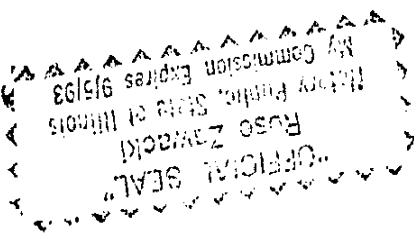 "OFFICIAL SEAL"
Rose Zawacki
Notary Public, State of Illinois
My Commission Expires 9/5/93